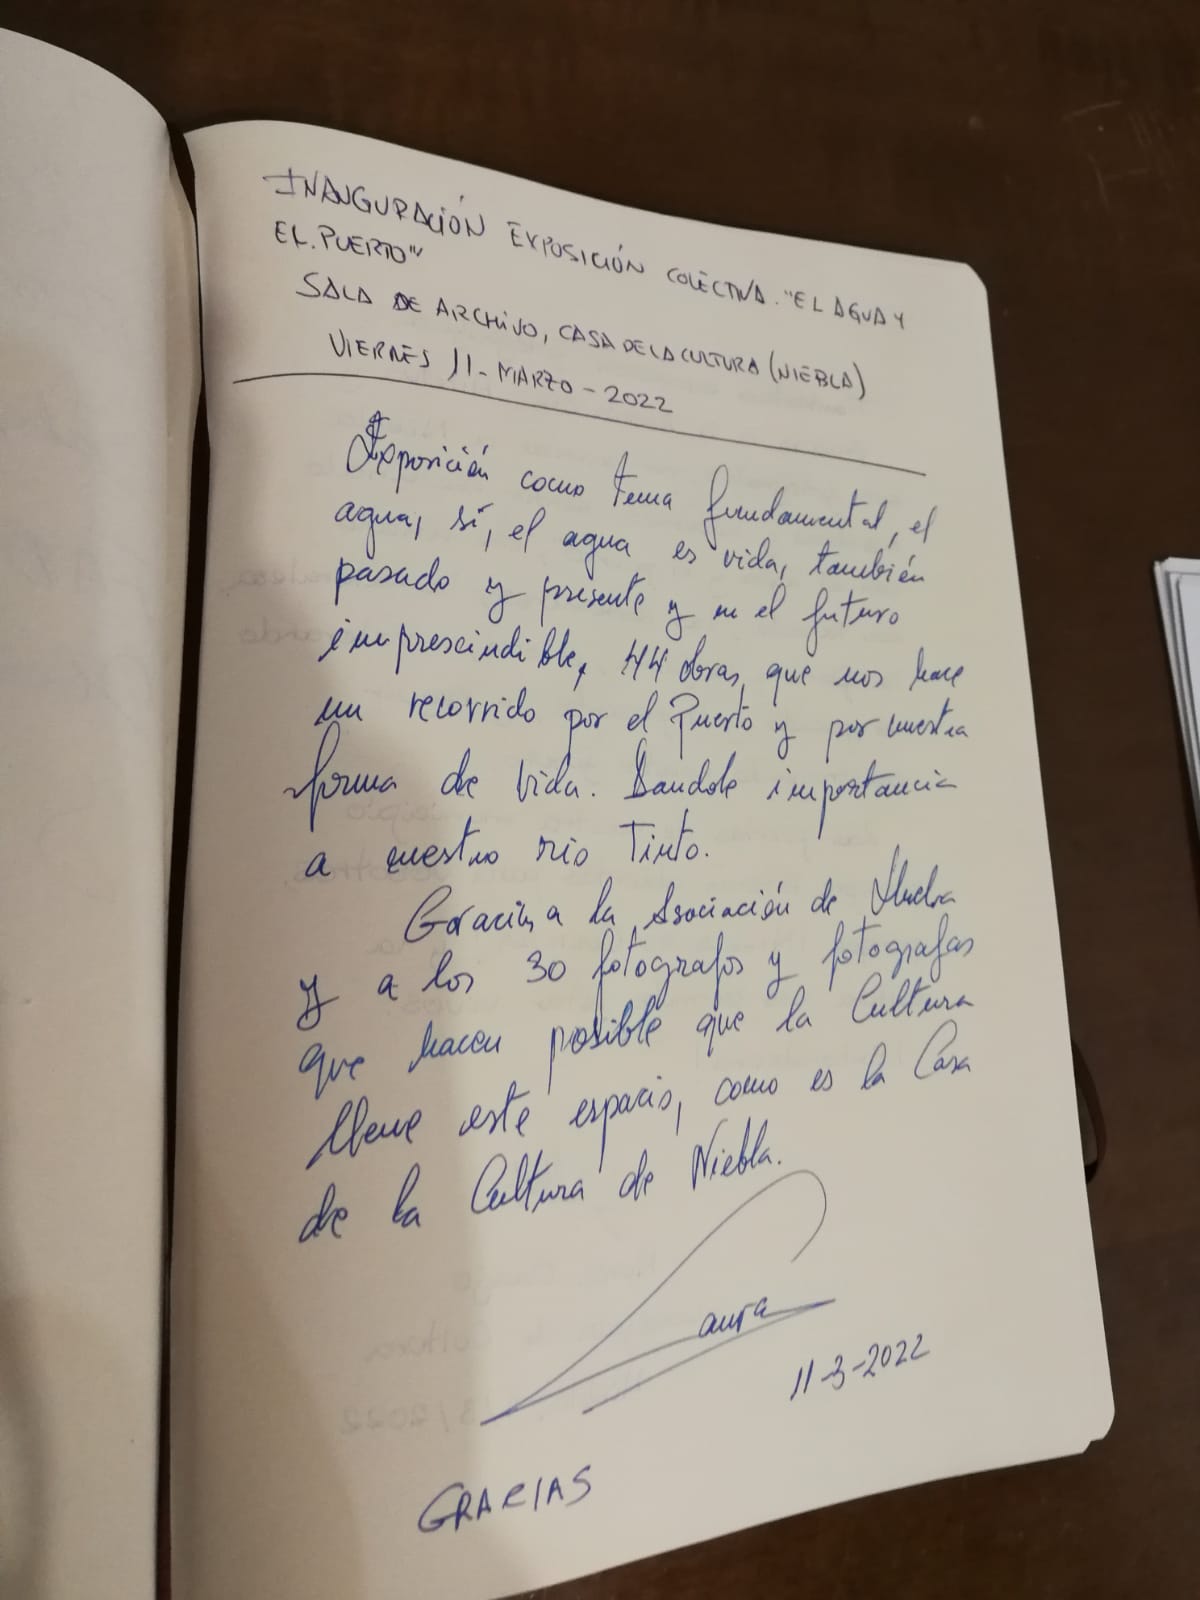 INAUGURACIÓN EXPOSICIÓN COLECTIVA. "EL AGUA Y
EL. PUERTO"
SALA DE ARCHIVO, CASA DE LA CULTURA (NIEBLA)
VIERNES 11- MARZO - 2022
Exposición como tema fundamental, el
agua, sí, el agua es vida, también
pasado y presente y en el futuro
imprescindible, 44 obras, que nos hace
un recorrido por el Puerto y por nuestra
forma de vida. Dandole importancia
a nuestro rio Tinto.
Gracias a la Asociación de Huelva
y a los 30 fotografos y fotografas
que hacen posible que la Cultura
llene este espacio, como es la Casa
de la Cultura de Niebla.
Laura
11-3-2022
GRACIAS